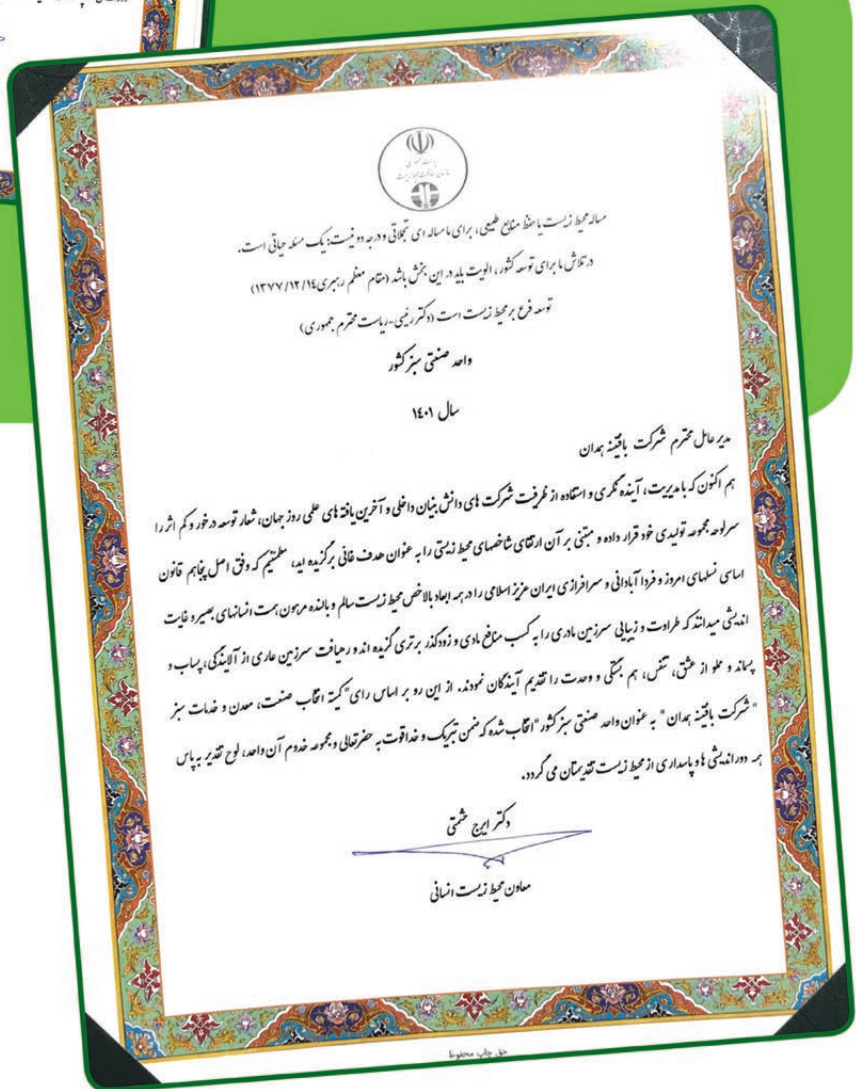 ریاست جمهوری
سازمان حفاظت محیط زیست
مساله محیط زیست یا حفظ منابع طبیعی، برای ما مساله ای تجملاتی و درجه دو نیست؛ یک مسئله حیاتی است.
در تلاش ما برای توسعه کشور، الویت باید در این بخش باشد (مقام معظم رهبری ۱۳۷۷/۱۲/۱۴)
توسعه فرع بر محیط زیست است (دکتر رئیسی-ریاست محترم جمهوری)
واحد صنعتی سبز کشور
سال ۱۴۰۱
مدیر عامل محترم شرکت بافتینه همدان
هم اکنون که با مدیریت، آینده نگری و استفاده از ظرفیت شرکت های دانش بنیان داخلی و آخرین یافته های علمی روز جهان، شعار توسعه درخور و کم اثر را
سرلوحه مجموعه تولیدی خود قرار داده و مبتنی بر آن ارتقای شاخصهای محیط زیستی را به عنوان هدف غائی برگزیده اید، مطمئنیم که وفق اصل پنجاهم قانون
اساسی نسلهای امروز و فردا آبادانی و سرافرازی ایران عزیز اسلامی را در همه ابعاد بالاخص محیط زیست سالم و بالنده مرهون همت انسانهای بصیر و غایت
اندیشی میدانند که طراوت و زیبایی سرزمین مادری را به کسب منافع مادی و زودگذر برتری گزیده اند و رهیافت سرزمین عاری از آلایندگی، پساب و
پسماند و مملو از عشق، تنفس، هم بستگی و وحدت را تقدیم آیندگان نمودند. از این رو بر اساس رای "کمیته انتخاب صنعت، معدن و خدمات سبز
"شرکت بافتینه همدان" به عنوان واحد صنعتی سبز کشور "انتخاب شده که ضمن تبریک و خداقوت به حضرتعالی و مجموعه خدوم آن واحد، لوح تقدیر به پاس
همه دوراندیشی ها و پاسداری از محیط زیست تقدیمتان می گردد.
دکتر ایرج حشمتی
معاون محیط زیست انسانی
حق چاپ محفوظ